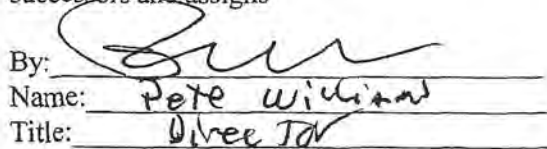 successors and assigns
By:
Name: Pete William
Title: Director